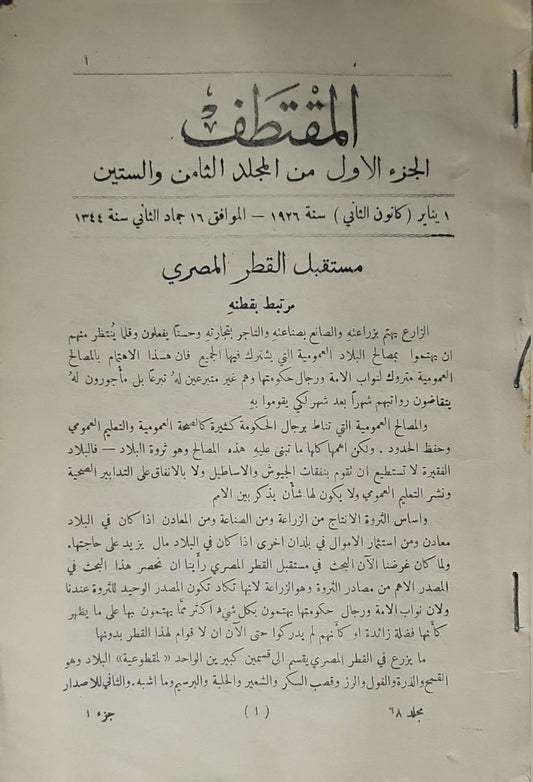 ١
المقْتَطَف
الجزء الاول من المجلد الثامن والستين
١ يناير (كانون الثاني) سنة ١٩٢٦ — الموافق ١٦ جماد الثاني سنة ١٣٤٤
مستقبل القطر المصري
مرتبط بقطنهِ
الزارع يهتم بزراعتهِ والصانع بصناعتهِ والتاجر بتجارتهِ وحسناً يفعلون وقلما يُنتظر منهم
ان يهتموا بمصالح البلاد العمومية التي يشترك فيها الجميع فان هـذا الاهتمام بالمصالح
العمومية متروك لنواب الامة ورجال حكومتها وهم غير متبرعين لهُ تبرعاً بل مأجورون لهُ
يتقاضون رواتبهم شهراً بعد شهر لكي يقوموا بهِ
والمصالح العمومية التي تناط برجال الحكومة كثيرة كالصحة العمومية والتعليم العمومي
وحفظ الحدود . ولكن اهمها كلها ما تبنى عليهِ هذه المصالح وهو ثروة البلاد — فالبلاد
الفقيرة لا تستطيع ان تقوم بنفقات الجيوش والاساطيل ولا بالانفاق على التدابير الصحية
ونشر التعليم العمومي ولا يكون لها شأن يذكر بين الامم
واساس الثروة الانتاج من الزراعة ومن الصناعة ومن المعادن اذا كان في البلاد
معادن ومن استثمار الاموال في بلدان اخرى اذا كان في البلاد مال يزيد على حاجتها.
ولما كان غرضنا الآن البحث في مستقبل القطر المصري رأينا ان نحصر هذا البحث في
المصدر الاهم من مصادر الثروة وهو الزراعة لانها تكاد تكون المصدر الوحيد للثروة عندنا
ولان نواب الامة ورجال حكومتها يهتمون بكل شيء اكثر ممَّا يهتمون بها على ما يظهر
كأنها فضلة زائدة او كأنهم لم يدركوا حتى الآن ان لا قوام لهذا القطر بدونها
ما يزرع في القطر المصري يقسم الى قسمين كبيرين الواحد «لمقطوعية» البلاد وهو
القمح والذرة والفول والرز وقصب السكر والشعير والحلبة والبرسيم وما اشبه . والثاني للاصدار
مجلد ٦٨ (١) جزء ١